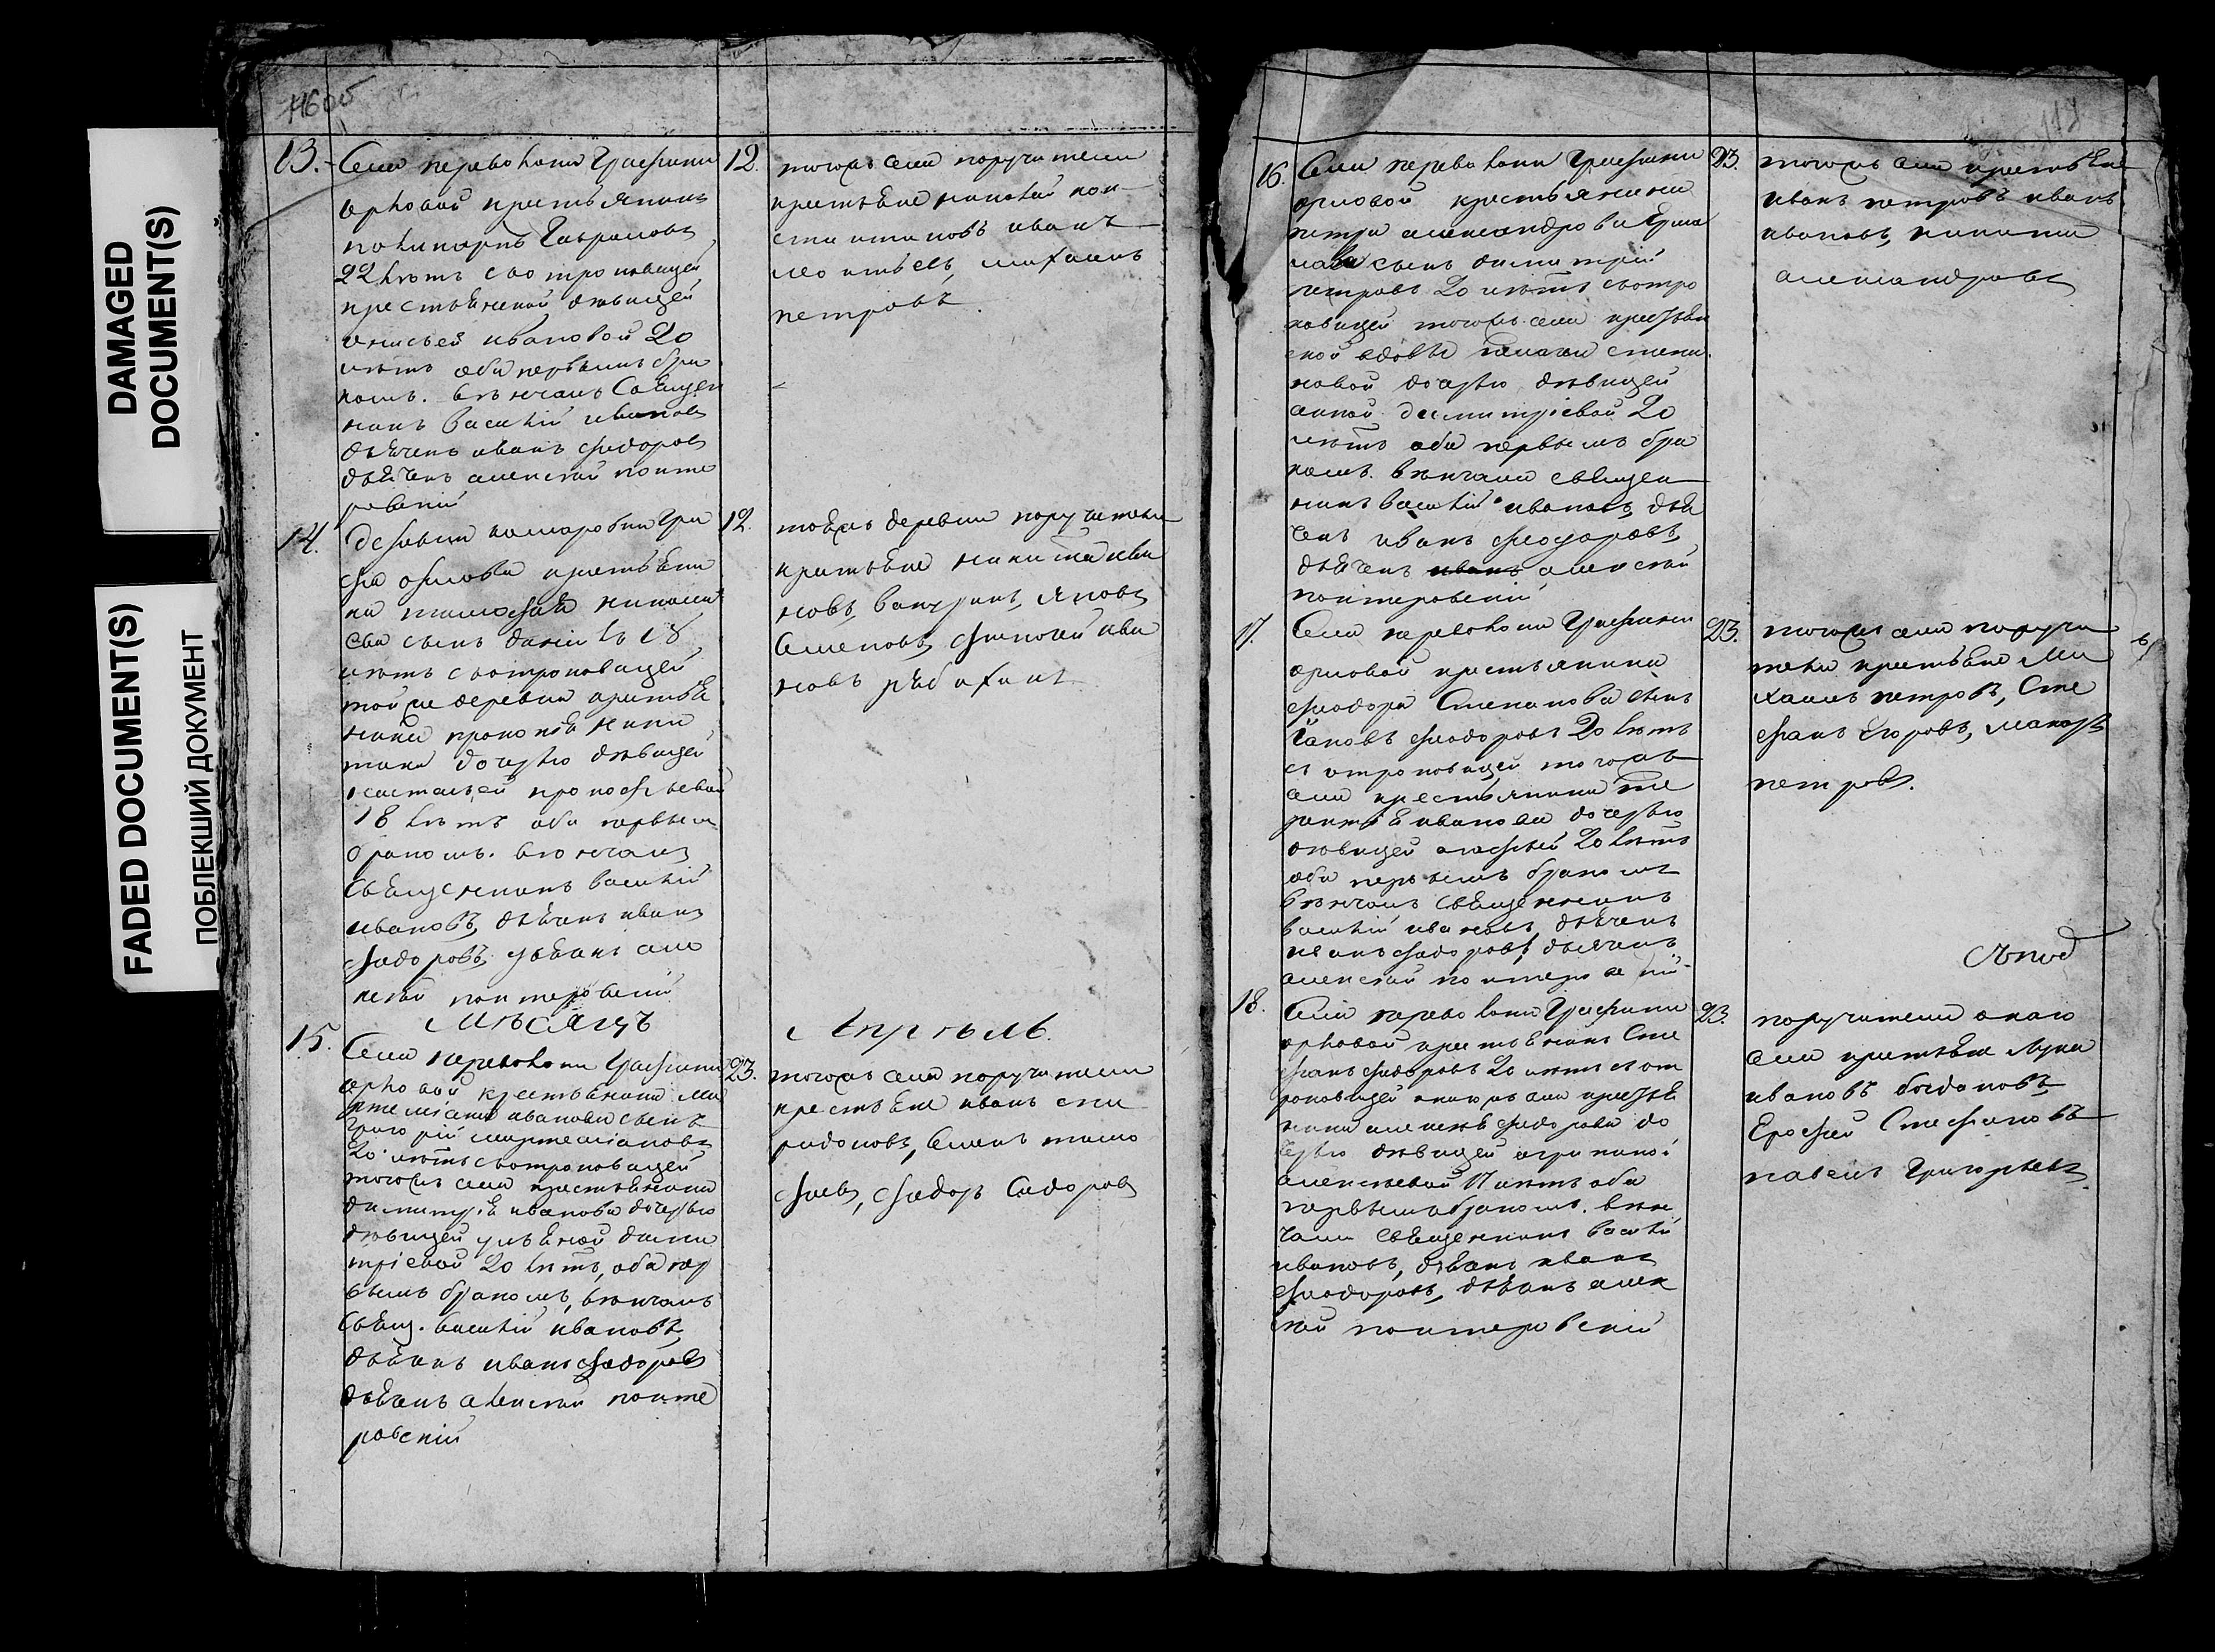 DAMAGED
DOCUMENT(S)
FADED DOCUMENT(S)
ПОБЛЕКШИЙ ДОКУМЕНТ
13. Села перевоloки Графини
орловой крестьянинъ
Гавриловъ
22 лѣтъ со отроковицей
крестьянской дѣвицей
ивановой 20
лѣтъ оба первымъ бра
комъ. вѣнчалъ Священ
никъ василій ивановъ
дьячекъ иванъ фиодоровъ
дьячекъ алексѣй понте
ровскій
12. тогожъ села поручители
крестьяне николай кон
стантиновъ иванъ
леонтьевъ, михаилъ
петровъ.
14. Деревни комаровки Гра
фа орлова крестьяни
на тимофѣя
сынъ 18
лѣтъ со отроковицей
той же деревни крестья
нина прокофья ники
тина дочерью дѣвицей
настасьей прокофьевой
18 лѣтъ оба первымъ
бракомъ. вѣнчалъ
Священникъ василій
ивановъ, дьячекъ иванъ
фиодоровъ, дьячекъ але
ксѣй понтеровскій
12. тояжъ деревни поручители
крестьяне никита ива
новъ, яковъ
Семеновъ, ива
новъ
Мѣсяцъ Апрѣль.
15. Села перевоloки Графини
орловой крестьянина ма
ртемьяна иванова сынъ
григорій мартемьяновъ
20 лѣтъ со отроковицей
тогожъ села крестьянина
димитрія иванова дочерью
дѣвицей ульяной дими
тріевой 20 лѣтъ, оба пер
вымъ бракомъ, вѣнчалъ
Свящ. василій ивановъ,
дьячекъ иванъ фиодоровъ
дьячекъ алексѣй понте
ровскій
23. тогожъ села поручители
крестьяне иванъ спи
ридоновъ, Семенъ тимо
фѣевъ, фиодоръ Сидоровъ
16. Села перевоloки Графини
орловой крестьянина
петра александрова
сынъ димитрій
петровъ 20 лѣтъ со отро
ковицей тогожъ села крестьян
ской вдовы степа
новой дочерью дѣвицей
анной димитріевой 20
лѣтъ оба первымъ бра
комъ. вѣнчали священ
никъ василій ивановъ, дья
чекъ иванъ фиодоровъ,
дьячекъ алексѣй
понтеровскій
23. тогожъ села крестьяне
иванъ петровъ иванъ
ивановъ, никита
александровъ
17. Села перевоloки Графини
орловой крестьянина
фиодора Степанова сынъ
яковъ фиодоровъ 20 лѣтъ
со отроковицей тогожъ
села крестьянина те
рентія иванова дочерью
дѣвицей агафьей 20 лѣтъ
оба первымъ бракомъ
вѣнчалъ священникъ
василій ивановъ, дьячекъ
иванъ фиодоровъ, дьячекъ
алексѣй понтеровскій
23. тогожъ села поручи
тели крестьяне Ми
хаилъ петровъ, Сте
фанъ Егоровъ, макаръ
петровъ.
18. Села перевоloки Графини
орловой крестьянинъ Сте
фанъ фиодоровъ 20 лѣтъ со от
роковицей онагожъ села крестья
нина алексѣя фиодорова до
черью дѣвицей агрипиной
алексѣевой 17 лѣтъ оба
первымъ бракомъ. вѣн
чали Священникъ василій
ивановъ, дьячекъ иванъ
фиодоровъ, дьячекъ алек
сѣй понтеровскій
23. поручители онаго
села крестьяне лука
ивановъ богдановъ
Ерофей Стефановъ
павелъ Григорьевъ